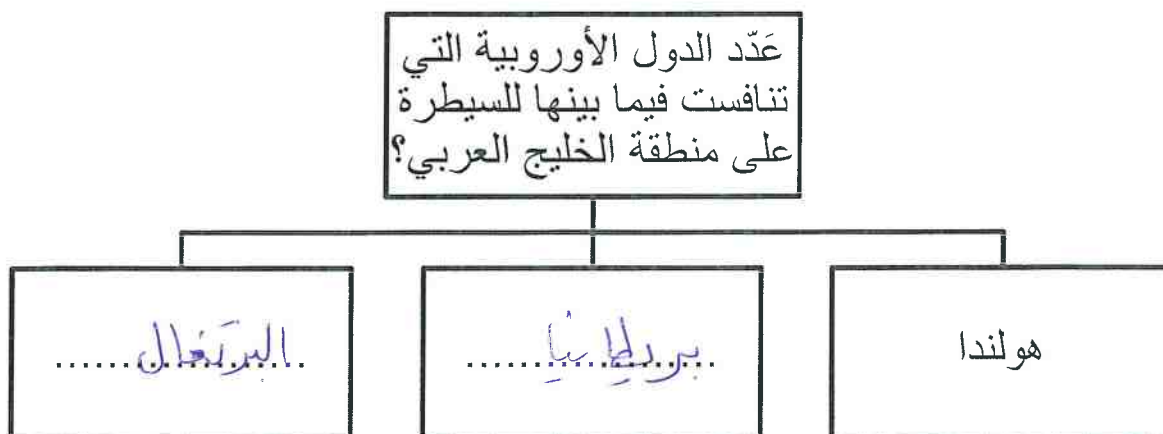 عَدّد الدول الأوروبية التي
تنافست فيما بينها للسيطرة
على منطقة الخليج العربي؟
هولندا
بريطانيا
البرتغال